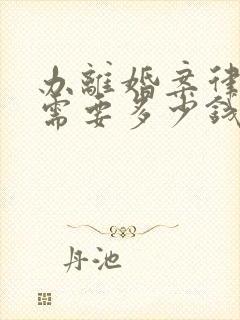 办離婚案律
需要多少錢
丹池